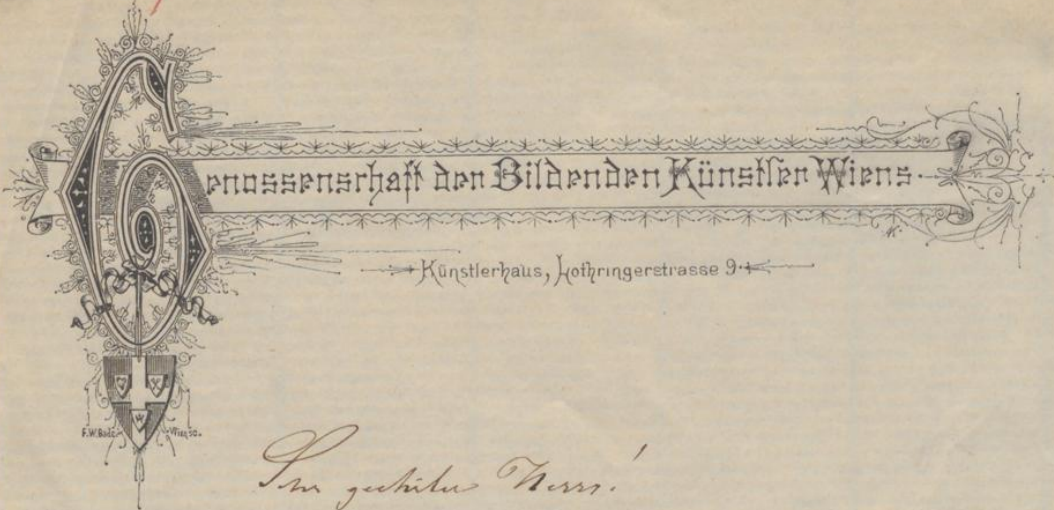 Genossenschaft der Bildenden Künstler Wiens.
Künstlerhaus, Lothringerstrasse 9.
F.W. Bade Wien sc.
Sehr geehrter Herr!